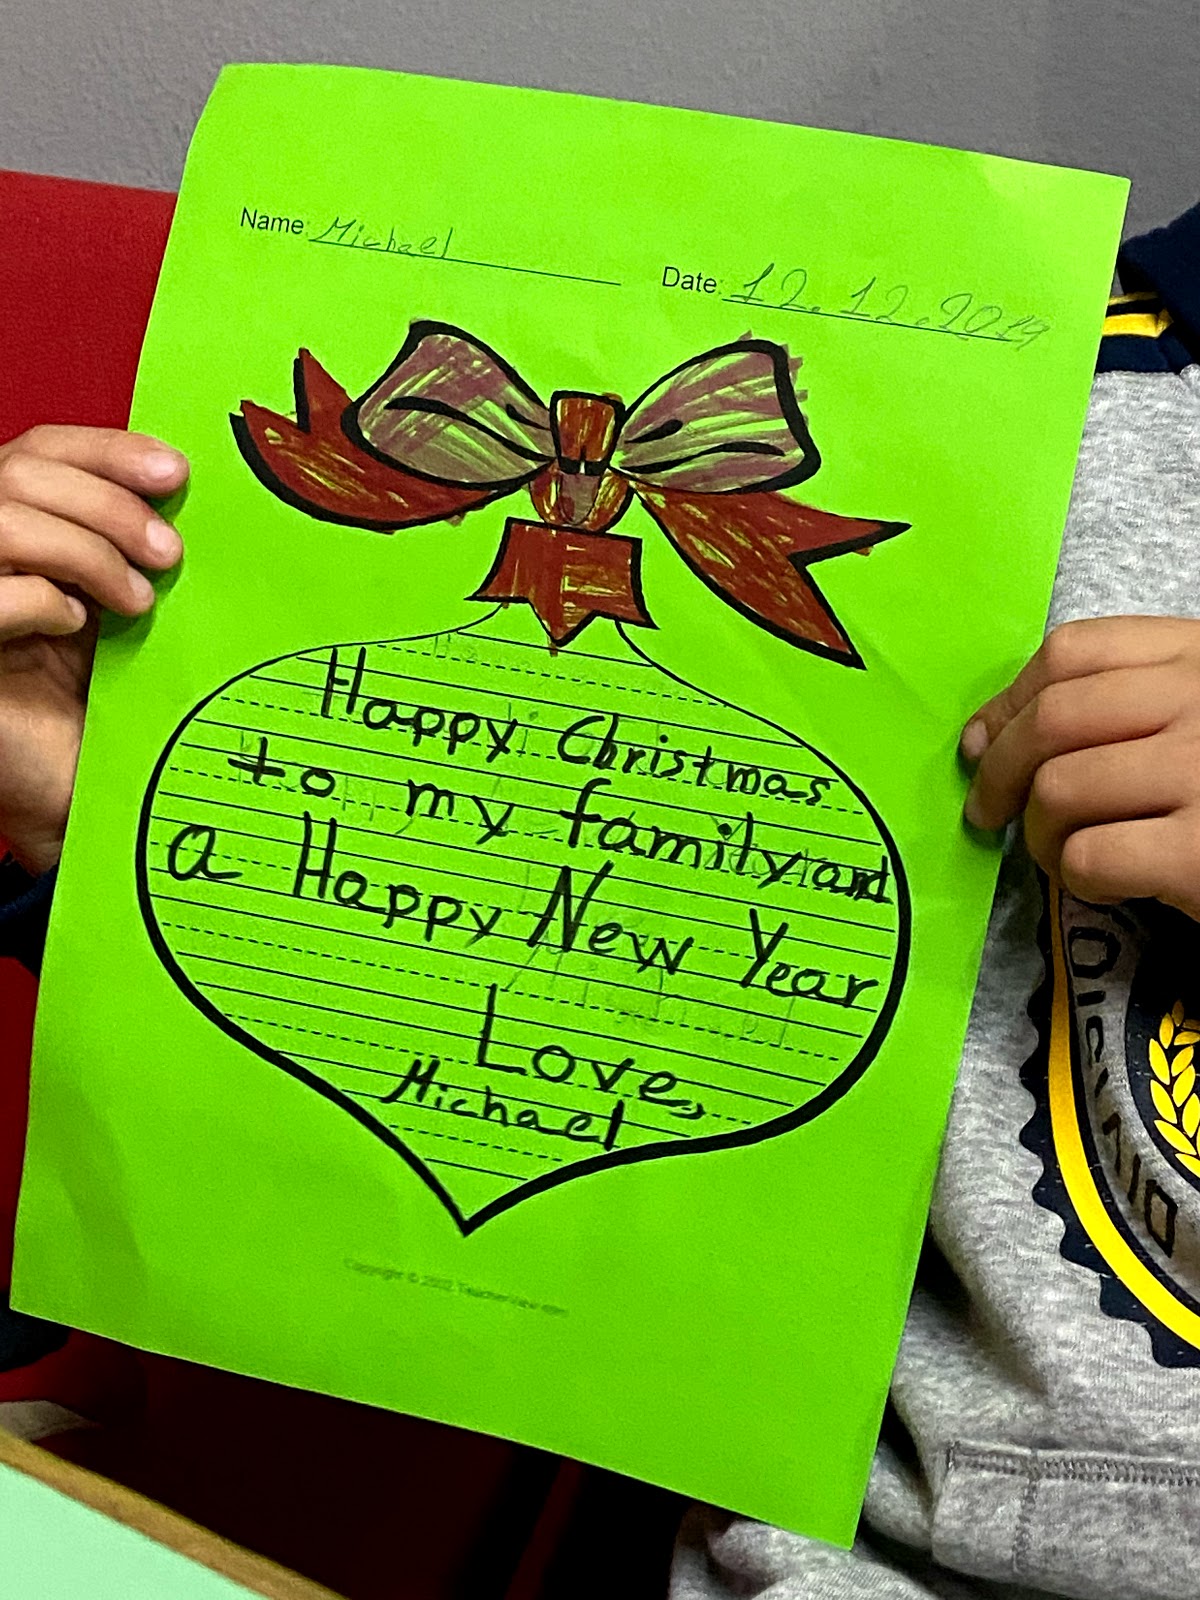 Name: Michael
Date: 12.12.2019
Happy Christmas
to my family and
a Happy New Year
Love,
Michael
Copyright © 2002